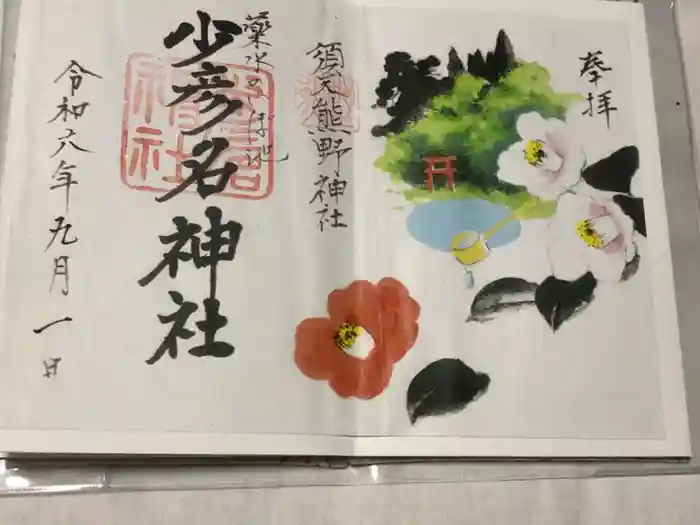 奉拝
須天熊野神社
薬水のいぼ池
少彦名神社
令和六年九月一日